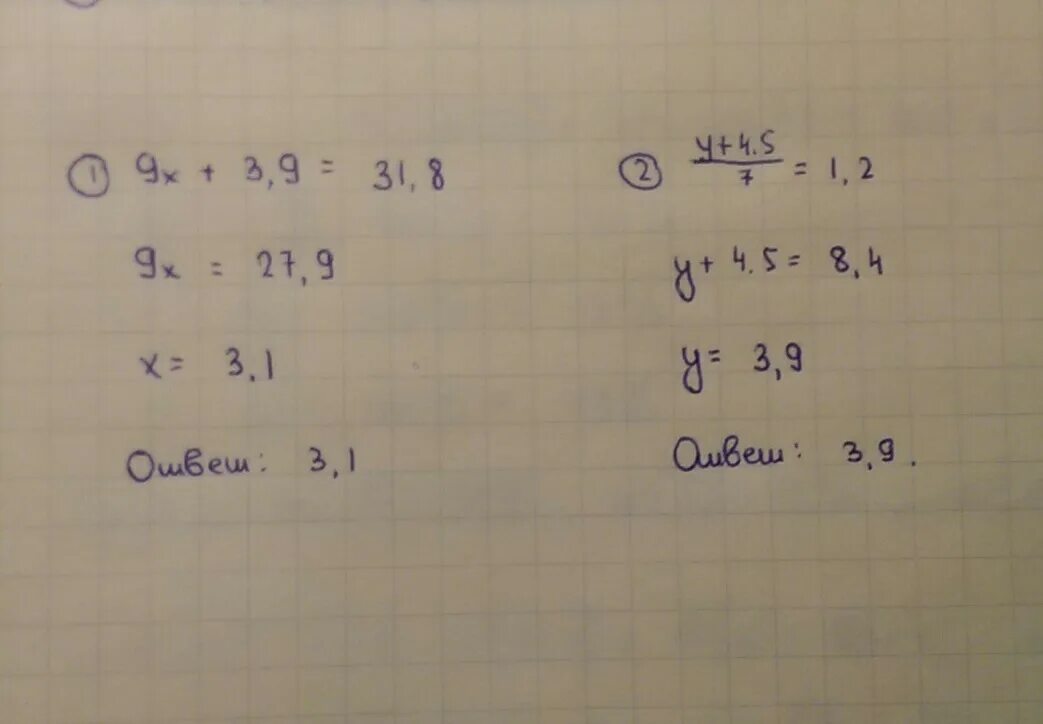 ① 9x + 3,9 = 31,8
9x = 27,9
x = 3,1
Ответ: 3,1
② (y+4.5)/7 = 1,2
y + 4.5 = 8,4
y = 3,9
Ответ: 3,9.